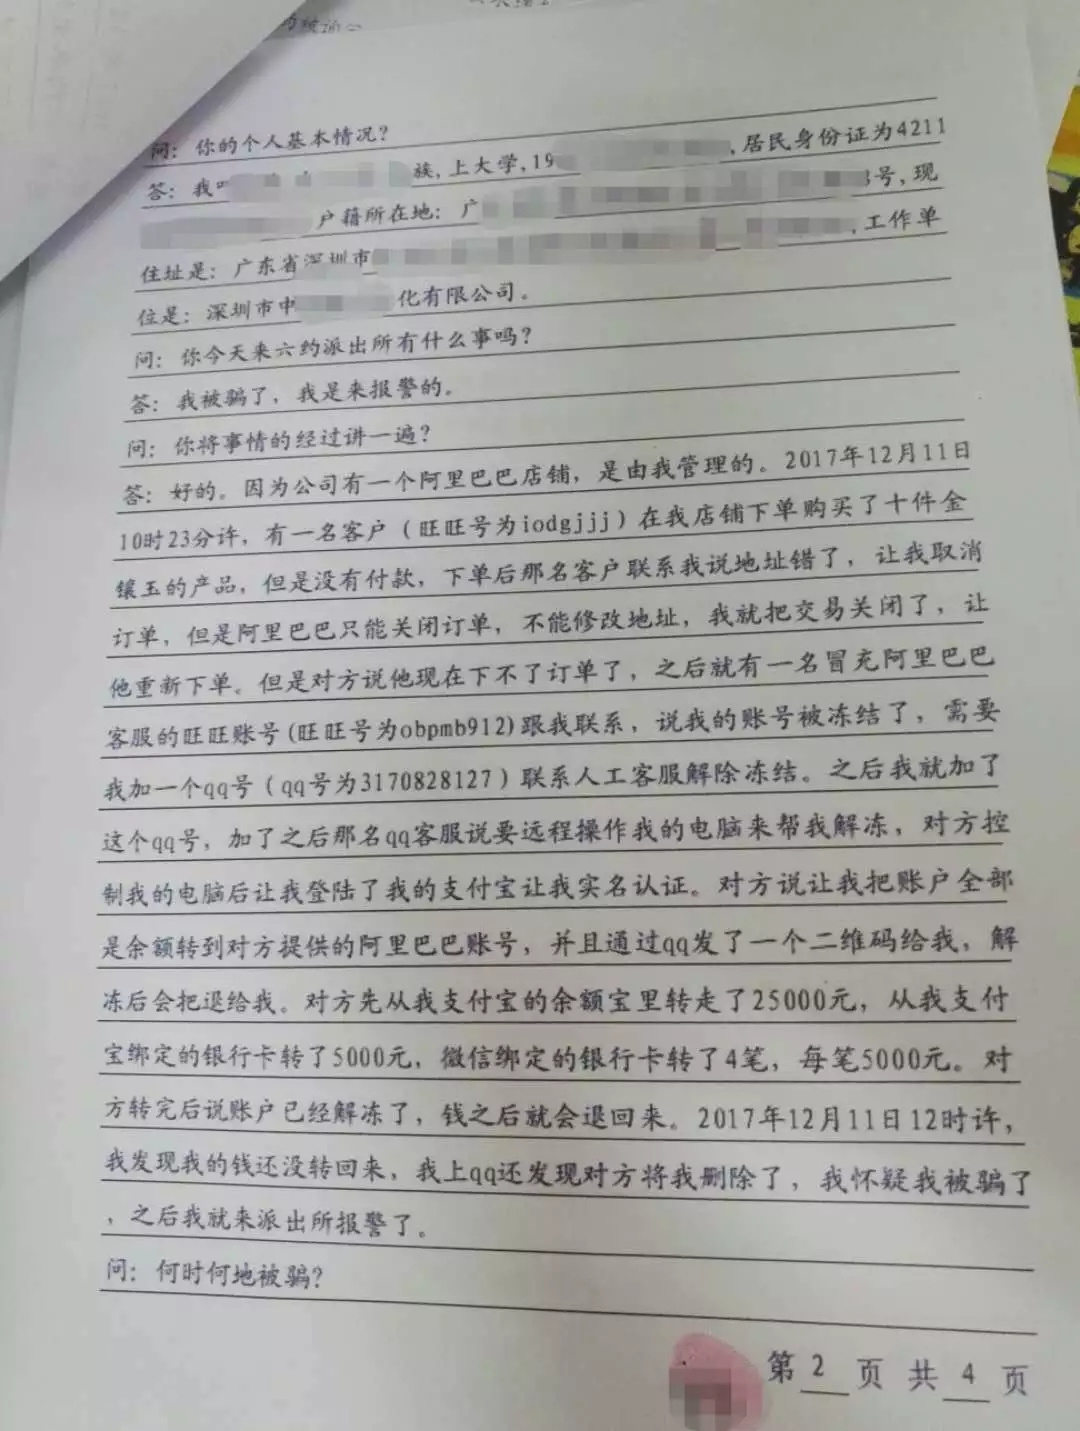 问：你的个人基本情况？
答：我 族，上大学，19 ，居民身份证为4211
户籍所在地：广 号，现
住址是：广东省深圳市 ，工作单
位是：深圳市中 化有限公司。
问：你今天来六约派出所有什么事吗？
答：我被骗了，我是来报警的。
问：你将事情的经过讲一遍？
答：好的。因为公司有一个阿里巴巴店铺，是由我管理的。2017年12月11日
10时23分许，有一名客户（旺旺号为iodgjjj）在我店铺下单购买了十件金
镶玉的产品，但是没有付款，下单后那名客户联系我说地址错了，让我取消
订单，但是阿里巴巴只能关闭订单，不能修改地址，我就把交易关闭了，让
他重新下单。但是对方说他现在下不了订单了，之后就有一名冒充阿里巴巴
客服的旺旺账号(旺旺号为obpmb912)跟我联系，说我的账号被冻结了，需要
我加一个qq号（qq号为3170828127）联系人工客服解除冻结。之后我就加了
这个qq号，加了之后那名qq客服说要远程操作我的电脑来帮我解冻，对方控
制我的电脑后让我登陆了我的支付宝让我实名认证。对方说让我把账户全部
是余额转到对方提供的阿里巴巴账号，并且通过qq发了一个二维码给我，解
冻后会把退给我。对方先从我支付宝的余额宝里转走了25000元，从我支付
宝绑定的银行卡转了5000元，微信绑定的银行卡转了4笔，每笔5000元。对
方转完后说账户已经解冻了，钱之后就会退回来。2017年12月11日12时许，
我发现我的钱还没转回来，我上qq还发现对方将我删除了，我怀疑我被骗了
，之后我就来派出所报警了。
问：何时何地被骗？
第2页 共4页